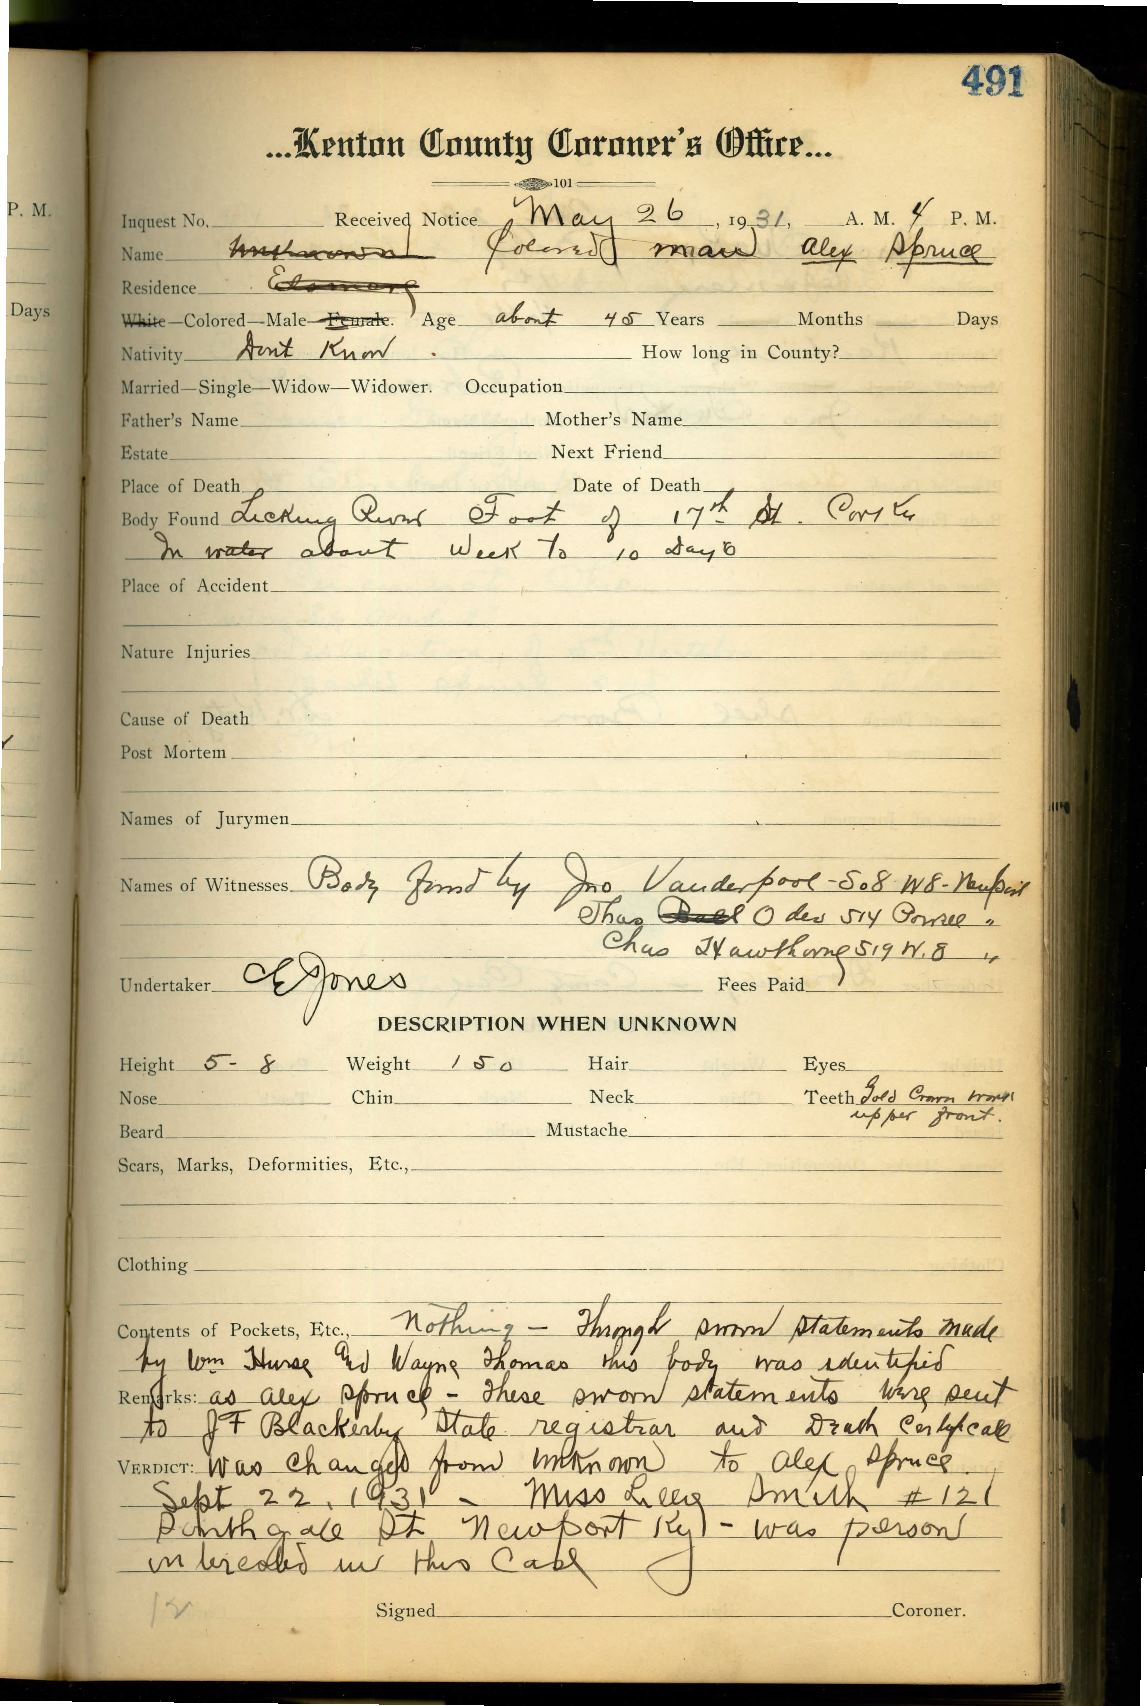 P. M.
Days
491
...Kenton County Coroner's Office...
101
Inquest No. Received Notice May 26, 1931, A. M. 4 P. M.
Name Unknown Colored man Alex Spruce
Residence Elsmere
White—Colored—Male—Female. Age about 45 Years Months Days
Nativity Dont Know. How long in County?
Married—Single—Widow—Widower. Occupation
Father's Name Mother's Name
Estate Next Friend
Place of Death Date of Death
Body Found Licking River Foot of 17th St. Cov Ky
In water about Week to 10 Days
Place of Accident
Nature Injuries
Cause of Death
Post Mortem
Names of Jurymen
Names of Witnesses Body found by Jno Vanderpool - 508 W 8 - Newport
Thas Oder 514 "
Chas Hawthorne 519 W. 8 "
Undertaker CE Jones Fees Paid
DESCRIPTION WHEN UNKNOWN
Height 5-8 Weight 150 Hair Eyes
Nose Chin Neck Teeth Gold Crown work
upper front.
Beard Mustache
Scars, Marks, Deformities, Etc.,
Clothing
Contents of Pockets, Etc., Nothing - Through sworn statements made
by Wm Hurse And Wayne Thomas this body was identified
Remarks: as Alex Spruce - These sworn statements were sent
to JF Blackerby State registrar and Death Certificate
VERDICT: was changed from unknown to Alex Spruce
Sept 22, 1931 - Miss Smith #121
Southgate St Newport Ky - was person
interested in this Case
12
Signed Coroner.